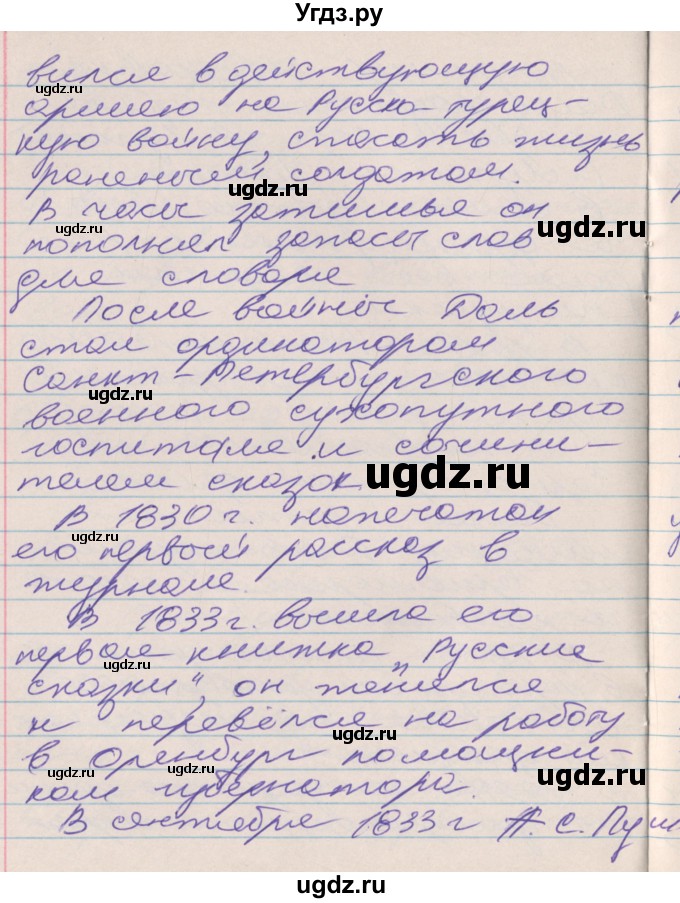 Угдз.ру
вился в действующую
армию на Русско-турец-
кую войну, спасать жизнь
раненым солдатам.
ugdz.ru
В часы затишья он
ugdz.ru
ugdz.ru
пополнял запасы слов
для словаря
После войны Даль
стал ординатором
Санкт-Петербургского
ugdz.ru
военного сухопутного
госпиталя и сочини-
телем сказок.
ugdz.ru
В 1830 г. напечатан
ugdz.ru
его первый рассказ в
журнале.
В 1833 г. вышла его
первая книжка „Русские
ugdz.ru
сказки“, он женился
и перевёлся на работу
ugdz.ru
в Оренбург помощни-
ugdz.ru
ugdz.ru
ком губернатора.
В сентябре 1833 г А. С. Пуш
ugdz.ru
ugdz.ru